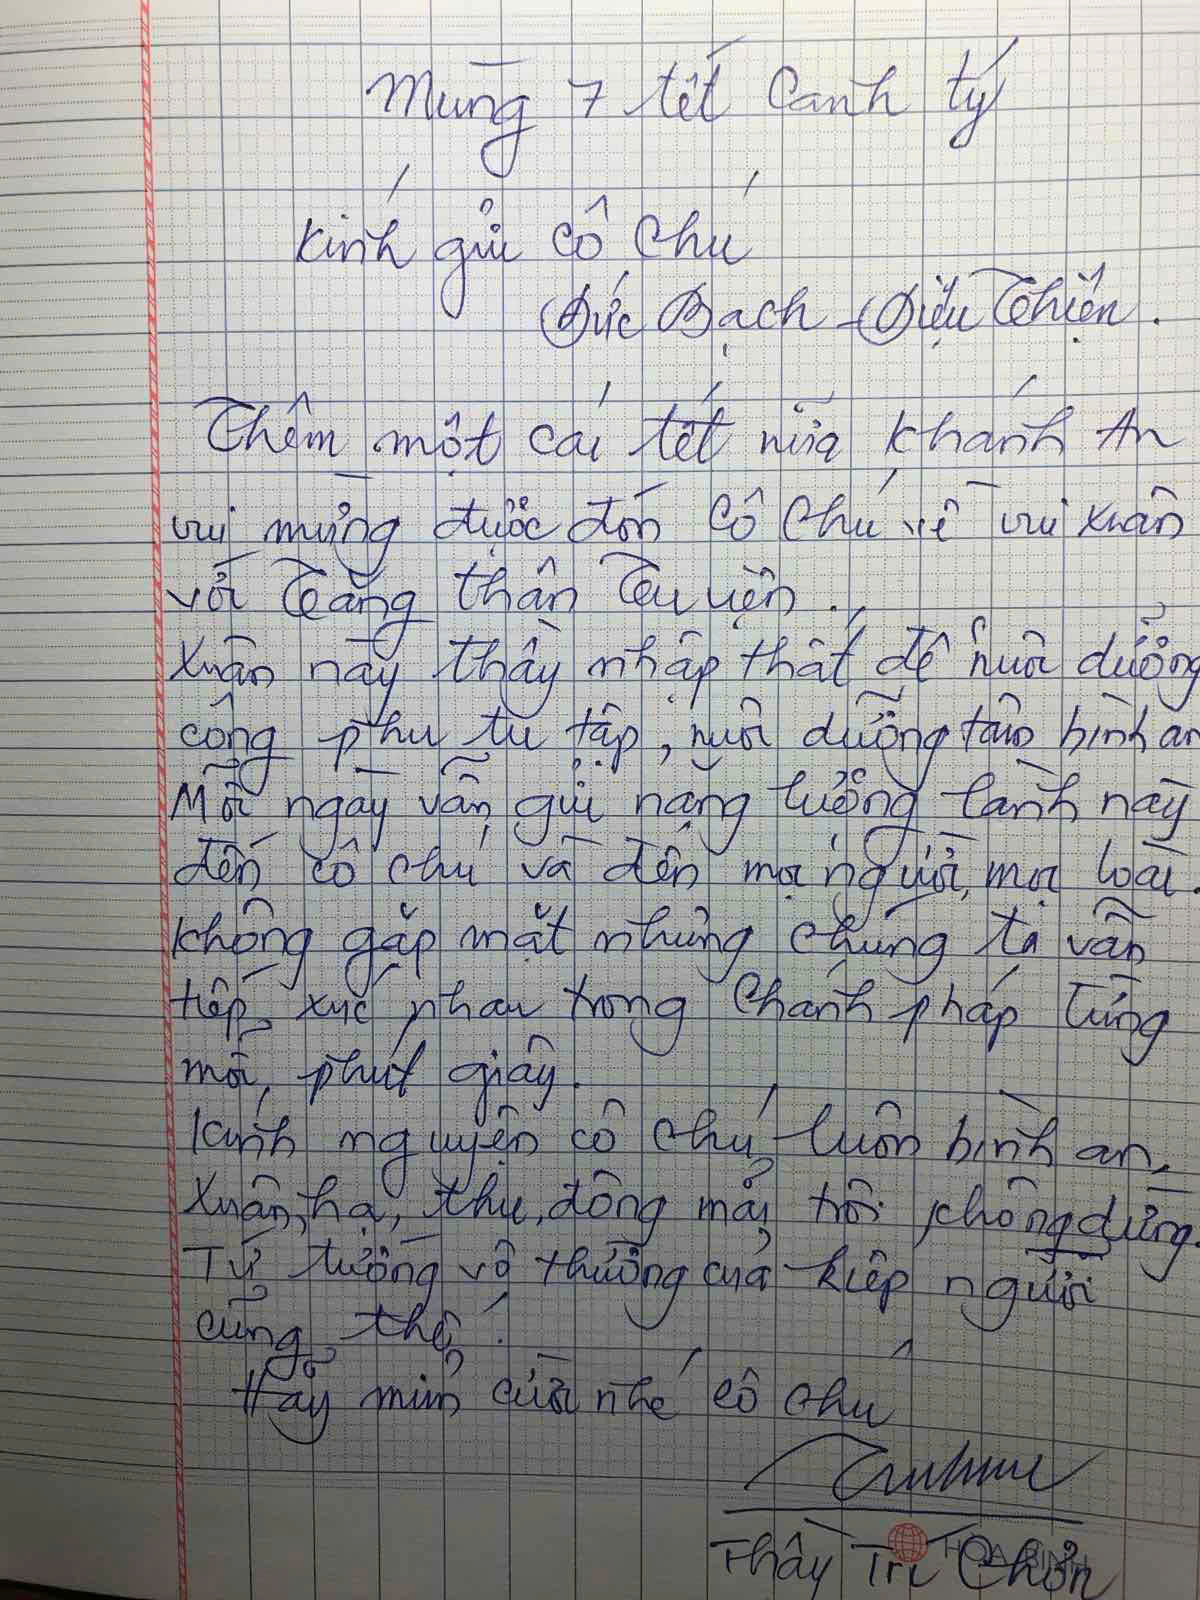 Mùng 7 tết Canh tý
Kính gửi cô chú
Đức Bạch - Diệu Thiện.
Thêm một cái tết nữa Khánh An
vui mừng được đón cô chú về vui xuân
với Tăng thân Tu viện.
Xuân này thầy nhập thất để nuôi dưỡng
công phu tu tập, nuôi dưỡng tâm bình an
Mỗi ngày vẫn gửi năng lượng lành này
đến cô chú và đến mọi người, mọi loài.
Không gặp mặt nhưng chúng ta vẫn
tiếp xúc nhau trong Chánh pháp từng
mỗi phút giây.
Kính nguyện cô chú luôn bình an.
Xuân, hạ, thu, đông mãi trôi không dừng.
Tứ tướng vô thường của kiếp người
cũng thế.
Hãy mỉm cười nhé cô chú
Thầy Trí Chơn
HOA BINH